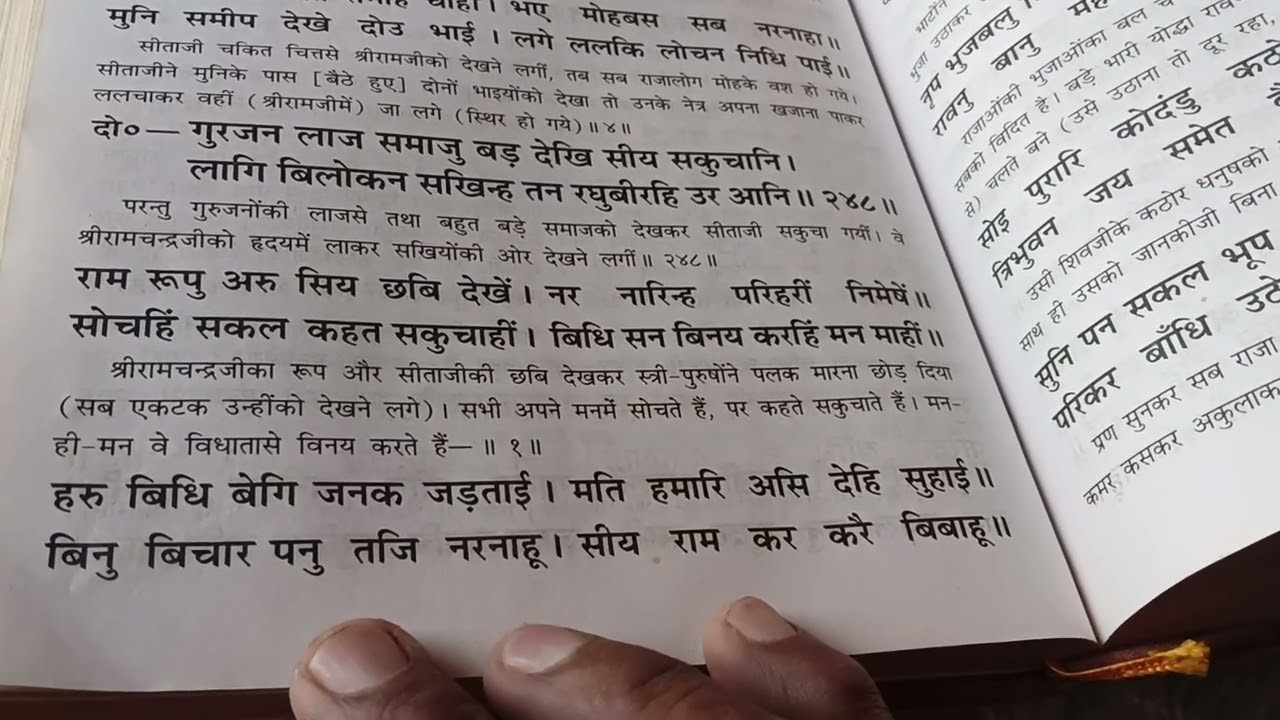 भए मोहबस सब नरनाहा॥
मुनि समीप देखे दोउ भाई। लगे ललकि लोचन निधि पाई॥
सीताजी चकित चित्तसे श्रीरामजीको देखने लगीं, तब सब राजालोग मोहके वश हो गये।
सीताजीने मुनिके पास [बैठे हुए] दोनों भाइयोंको देखा तो उनके नेत्र अपना खजाना पाकर
ललचाकर वहीं (श्रीरामजीमें) जा लगे (स्थिर हो गये)॥४॥
दो०— गुरजन लाज समाजु बड़ देखि सीय सकुचानि।
लागि बिलोकन सखिन्ह तन रघुबीरहि उर आनि॥ २४८॥
परन्तु गुरुजनोंकी लाजसे तथा बहुत बड़े समाजको देखकर सीताजी सकुचा गयीं। वे
श्रीरामचन्द्रजीको हृदयमें लाकर सखियोंकी ओर देखने लगीं॥ २४८॥
राम रूपु अरु सिय छबि देखें। नर नारिन्ह परिहरीं निमेषें॥
सोचहिं सकल कहत सकुचाहीं। बिधि सन बिनय करहिं मन माहीं॥
श्रीरामचन्द्रजीका रूप और सीताजीकी छबि देखकर स्त्री-पुरुषोंने पलक मारना छोड़ दिया
(सब एकटक उन्हींको देखने लगे)। सभी अपने मनमें सोचते हैं, पर कहते सकुचाते हैं। मन-
ही-मन वे विधातासे विनय करते हैं— ॥ १॥
हरु बिधि बेगि जनक जड़ताई। मति हमारि असि देहि सुहाई॥
बिनु बिचार पनु तजि नरनाहू। सीय राम कर करै बिबाहू॥
भुजा उठाकर
नृप भुजबलु
रावनु बानु
राजाओंकी भुजाओंका बल
सबको विदित है। बड़े भारी योद्धा
से) चलते बने (उसे उठाना तो दूर रहा,
सोइ पुरारि कोदंडु
त्रिभुवन जय समेत
उसी शिवजीके कठोर धनुषको
साथ ही उसको जानकीजी बिना
सुनि पन सकल भूप
परिकर बाँधि
प्रण सुनकर सब राजा
कमर कसकर अकुलाकर